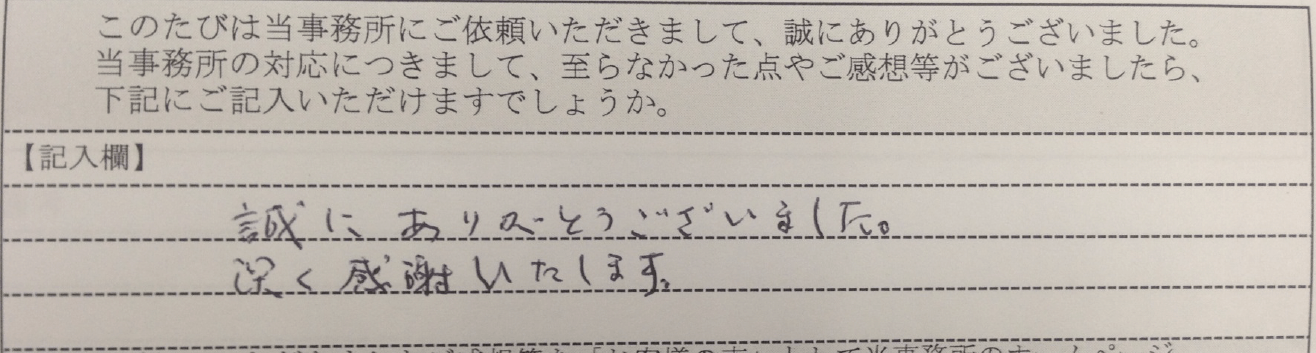 このたびは当事務所にご依頼いただきまして、誠にありがとうございました。
当事務所の対応につきまして、至らなかった点やご感想等がございましたら、
下記にご記入いただけますでしょうか。
【記入欄】
誠にありがとうございました。
深く感謝いたします。
「お客様の声」として当事務所のホームページ